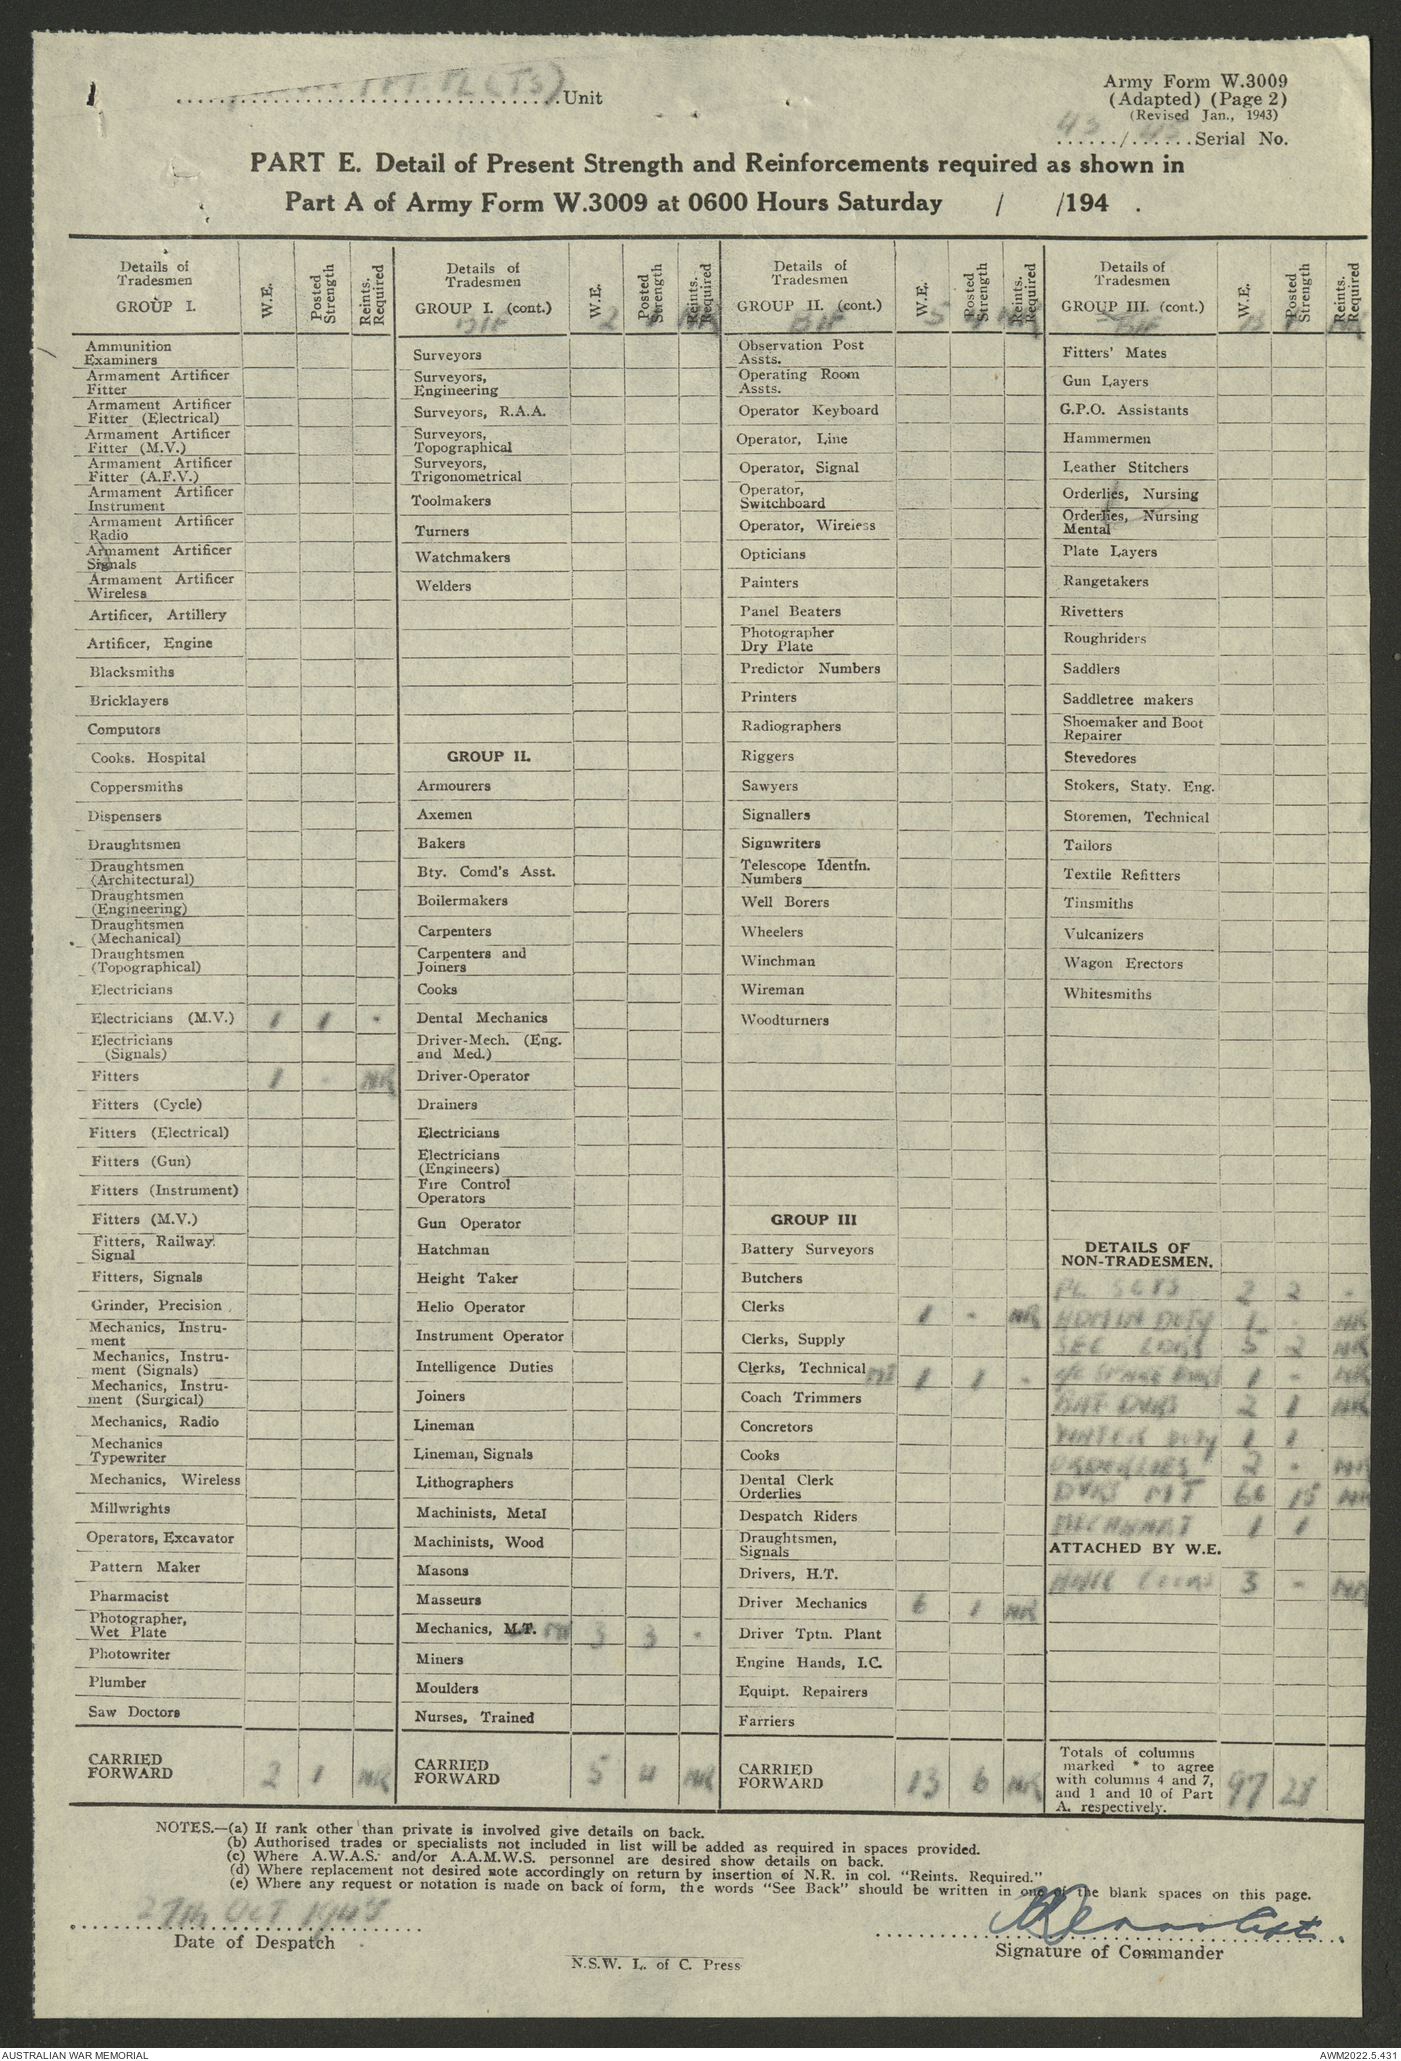 1
TPT. PL (TS)
Unit
Army Form W.3009
(Adapted) (Page 2)
(Revised Jan., 1943)
43 / 45 Serial No.
PART E. Detail of Present Strength and Reinforcements required as shown in
Part A of Army Form W.3009 at 0600 Hours Saturday / /194 .
Details of Tradesmen GROUP I. W.E. Posted Strength Reints. Required
Ammunition Examiners
Armament Artificer Fitter
Armament Artificer Fitter (Electrical)
Armament Artificer Fitter (M.V.)
Armament Artificer Fitter (A.F.V.)
Armament Artificer Instrument
Armament Artificer Radio
Armament Artificer Signals
Armament Artificer Wireless
Artificer, Artillery
Artificer, Engine
Blacksmiths
Bricklayers
Computors
Cooks. Hospital
Coppersmiths
Dispensers
Draughtsmen
Draughtsmen (Architectural)
Draughtsmen (Engineering)
Draughtsmen (Mechanical)
Draughtsmen (Topographical)
Electricians
Electricians (M.V.) 1 1 -
Electricians (Signals)
Fitters 1 - NR
Fitters (Cycle)
Fitters (Electrical)
Fitters (Gun)
Fitters (Instrument)
Fitters (M.V.)
Fitters, Railway Signal
Fitters, Signals
Grinder, Precision
Mechanics, Instrument
Mechanics, Instrument (Signals)
Mechanics, Instrument (Surgical)
Mechanics, Radio
Mechanics Typewriter
Mechanics, Wireless
Millwrights
Operators, Excavator
Pattern Maker
Pharmacist
Photographer, Wet Plate
Photowriter
Plumber
Saw Doctors
CARRIED FORWARD 2 1 NR
Details of Tradesmen GROUP I. (cont.) W.E. Posted Strength Reints. Required
B/F 2 1 NR
Surveyors
Surveyors, Engineering
Surveyors, R.A.A.
Surveyors, Topographical
Surveyors, Trigonometrical
Toolmakers
Turners
Watchmakers
Welders
GROUP II.
Armourers
Axemen
Bakers
Bty. Comd's Asst.
Boilermakers
Carpenters
Carpenters and Joiners
Cooks
Dental Mechanics
Driver-Mech. (Eng. and Med.)
Driver-Operator
Drainers
Electricians
Electricians (Engineers)
Fire Control Operators
Gun Operator
Hatchman
Height Taker
Helio Operator
Instrument Operator
Intelligence Duties
Joiners
Lineman
Lineman, Signals
Lithographers
Machinists, Metal
Machinists, Wood
Masons
Masseurs
Mechanics, M.T. 3 3 -
Miners
Moulders
Nurses, Trained
CARRIED FORWARD 5 4 NR
Details of Tradesmen GROUP II. (cont.) W.E. Posted Strength Reints. Required
B/F 5 4 NR
Observation Post Assts.
Operating Room Assts.
Operator Keyboard
Operator, Line
Operator, Signal
Operator, Switchboard
Operator, Wireless
Opticians
Painters
Panel Beaters
Photographer Dry Plate
Predictor Numbers
Printers
Radiographers
Riggers
Sawyers
Signallers
Signwriters
Telescope Identfn. Numbers
Well Borers
Wheelers
Winchman
Wireman
Woodturners
GROUP III
Battery Surveyors
Butchers
Clerks 1 - NR
Clerks, Supply
Clerks, Technical MT 1 1 -
Coach Trimmers
Concretors
Cooks
Dental Clerk Orderlies
Despatch Riders
Draughtsmen, Signals
Drivers, H.T.
Driver Mechanics 6 1 NR
Driver Tptn. Plant
Engine Hands, I.C.
Equipt. Repairers
Farriers
CARRIED FORWARD 13 6 NR
Details of Tradesmen GROUP III. (cont.) W.E. Posted Strength Reints. Required
B/F 13 6 NR
Fitters' Mates
Gun Layers
G.P.O. Assistants
Hammermen
Leather Stitchers
Orderlies, Nursing
Orderlies, Nursing Mental
Plate Layers
Rangetakers
Rivetters
Roughriders
Saddlers
Saddletree makers
Shoemaker and Boot Repairer
Stevedores
Stokers, Staty. Eng.
Storemen, Technical
Tailors
Textile Refitters
Tinsmiths
Vulcanizers
Wagon Erectors
Whitesmiths
DETAILS OF NON-TRADESMEN.
PL SGTS 2 2 -
ADMIN DUTY 1 - NR
SEC CDRS 5 2 NR
1 - NR
BAT DVRS 2 1 NR
WATER DUTY 1 1
ORDERLIES 2 - NR
DVRS MT 66 15 NR
1 1
ATTACHED BY W.E.
COOKS 3 - NR
Totals of columns marked * to agree with columns 4 and 7, and 1 and 10 of Part A. respectively. 97 28
NOTES.—(a) If rank other than private is involved give details on back.
(b) Authorised trades or specialists not included in list will be added as required in spaces provided.
(c) Where A.W.A.S. and/or A.A.M.W.S. personnel are desired show details on back.
(d) Where replacement not desired note accordingly on return by insertion of N.R. in col. "Reints. Required."
(e) Where any request or notation is made on back of form, the words "See Back" should be written in one of the blank spaces on this page.
27th OCT 1945
Date of Despatch
Capt.
Signature of Commander
N.S.W. L. of C. Press
AUSTRALIAN WAR MEMORIAL
AWM2022.5.431